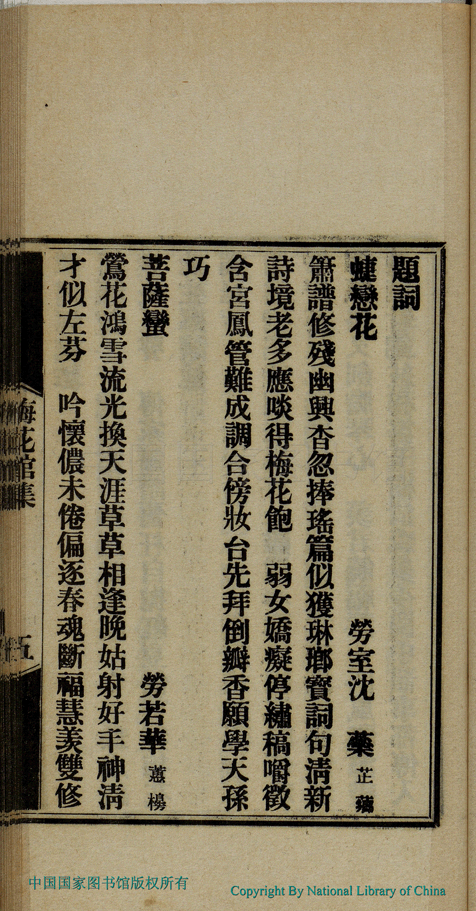 題詞
蜨戀花　勞室沈　蘂　芷薌
簫譜修殘幽興杳忽捧瑤篇似獲琳瑯寶詞句淸新
詩境老多應啖得梅花飽　弱女嬌癡停繡稿嚼徵
含宮鳳管難成調合傍妝台先拜倒瓣香願學天孫
巧
菩薩蠻　勞若華　蕙櫋
鶯花鴻雪流光換天涯草草相逢晚姑射好丰神淸
才似左芬　吟懷儂未倦偏逐春魂斷福慧羨雙修
梅花館集
五
中国国家图书馆版权所有
Copyright By National Library of China